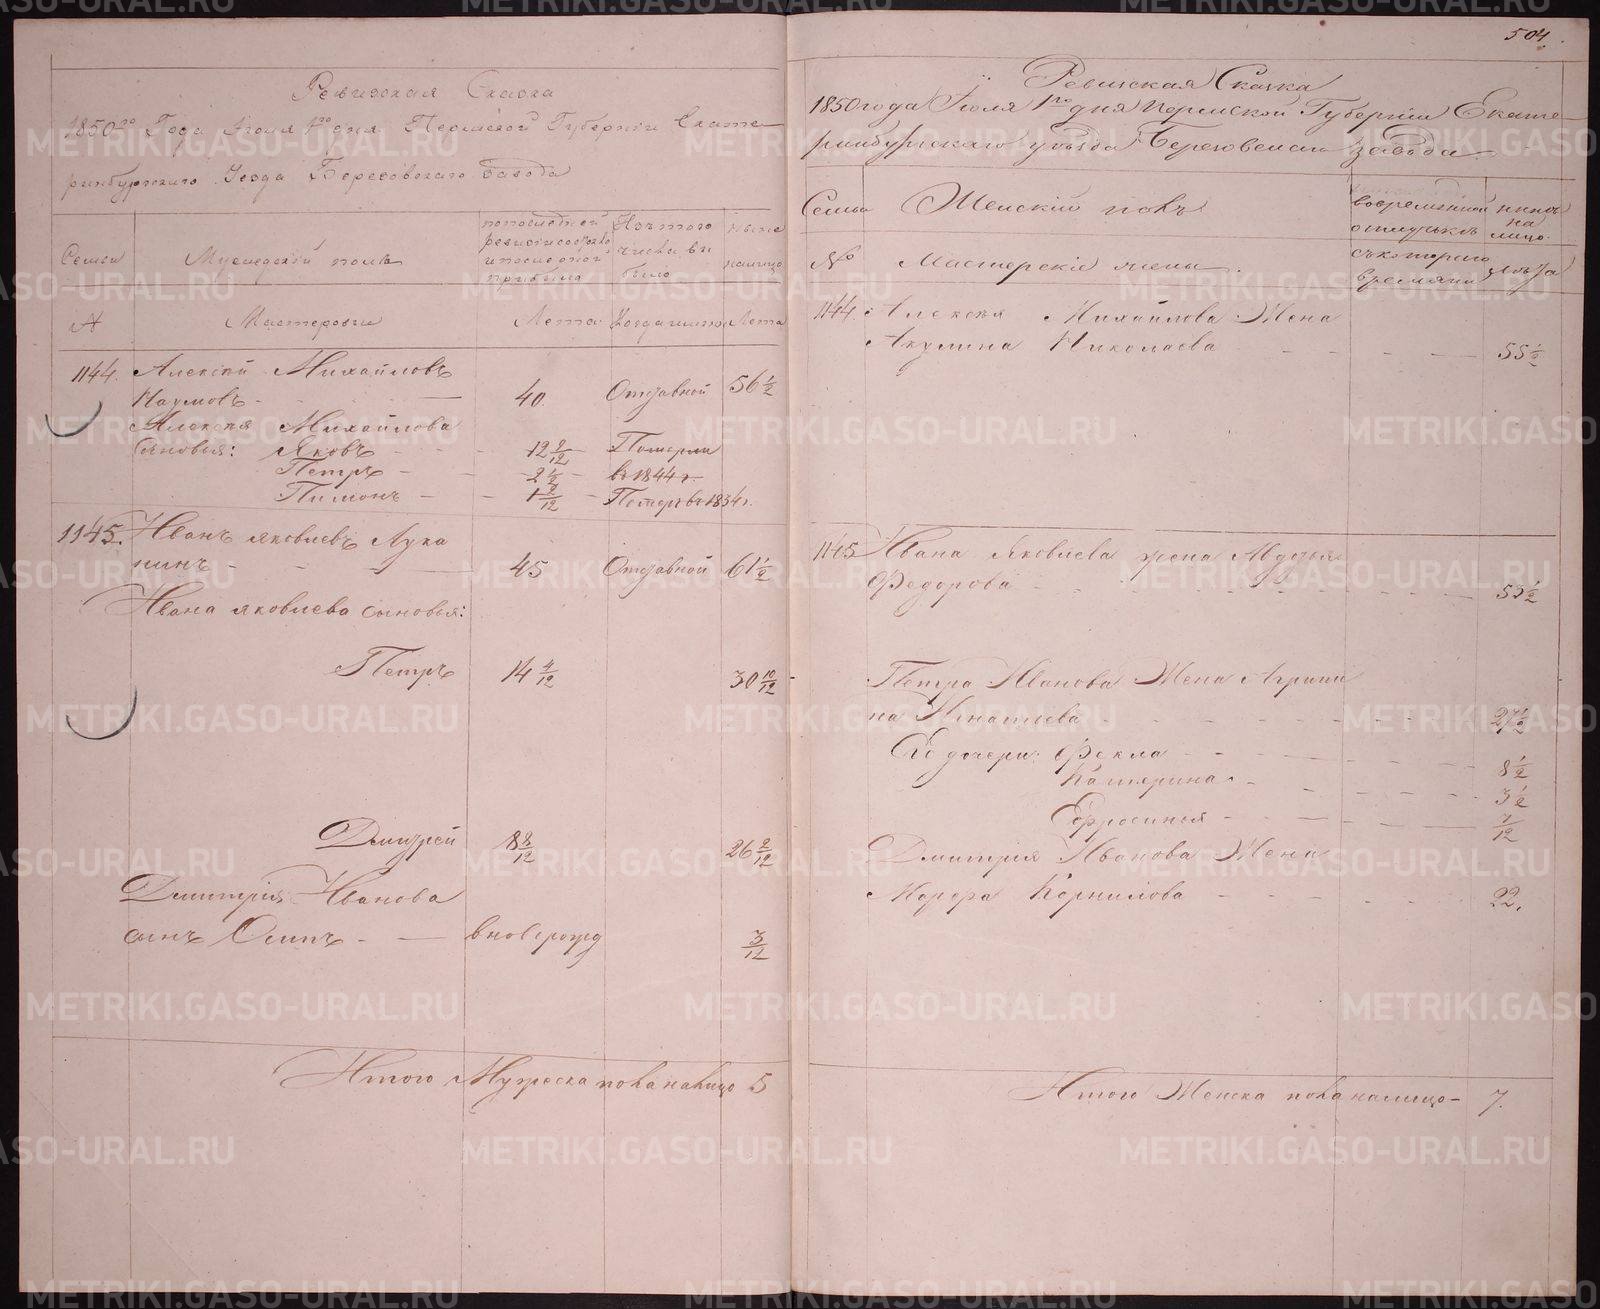 504.
Ревизская Сказка
1850го Года Іюля 1го дня Пермской Губерніи Екате-
ринбургскаго Уезда Березовскаго Завода
Семьи
Мужеской полъ
по последней
ревизіи состояло
и после оной
прибыло
Изъ того
числа вы
было
ныне
на лицо
№
Мастеровыи
Лета
Когда имянно
Лета
1144. Алексей Михайловъ
Наумовъ - 40. Отставной 56 1/2
Алексея Михайлова
сыновья: Яковъ - - 12 9/12 - Померли
Петръ - - 2 1/2 - въ 1844 г.
Пимонъ - - 1 8/12 - Померъ въ 1834 г.
1145. Иванъ Яковлевъ Лука
нинъ - - 45 Отставной 61 1/2
Ивана Яковлева сыновья:
Петръ 14 4/12 30 10/12
Дмитрей 8 8/12 26 2/12
Дмитрія Иванова
сынъ Осипъ - - вновь рожд 3/12
Итого Мужеска пола на лицо 5
Ревизская Сказка
1850 года Іюля 1го дня Пермской Губерніи Екате-
ринбургскаго уезда Березовскаго завода.
Семьи
Женскій полъ
во временной
отлучкѣ
ныне
на
лицо.
№
Мастерскіе жены.
съ котораго
времяни
лѣта
1144. Алексея Михайлова Жена
Акулина Николаева - - - - 55 1/2
1145 Ивана Яковлева жена
Федорова - - - - 53 1/2
Петра Иванова Жена Агрипи
на Игнатьева - - - - 27 1/2
Его дочери: Фекла - - - 8 1/2
Катерина - - - 3 1/2
Ефросинья - - - 7/12
Дмитрия Иванова Жена
Марфа Корнилова - - - 22.
Итого Женска пола на лицо - 7.
METRIKI.GASO-URAL.RU